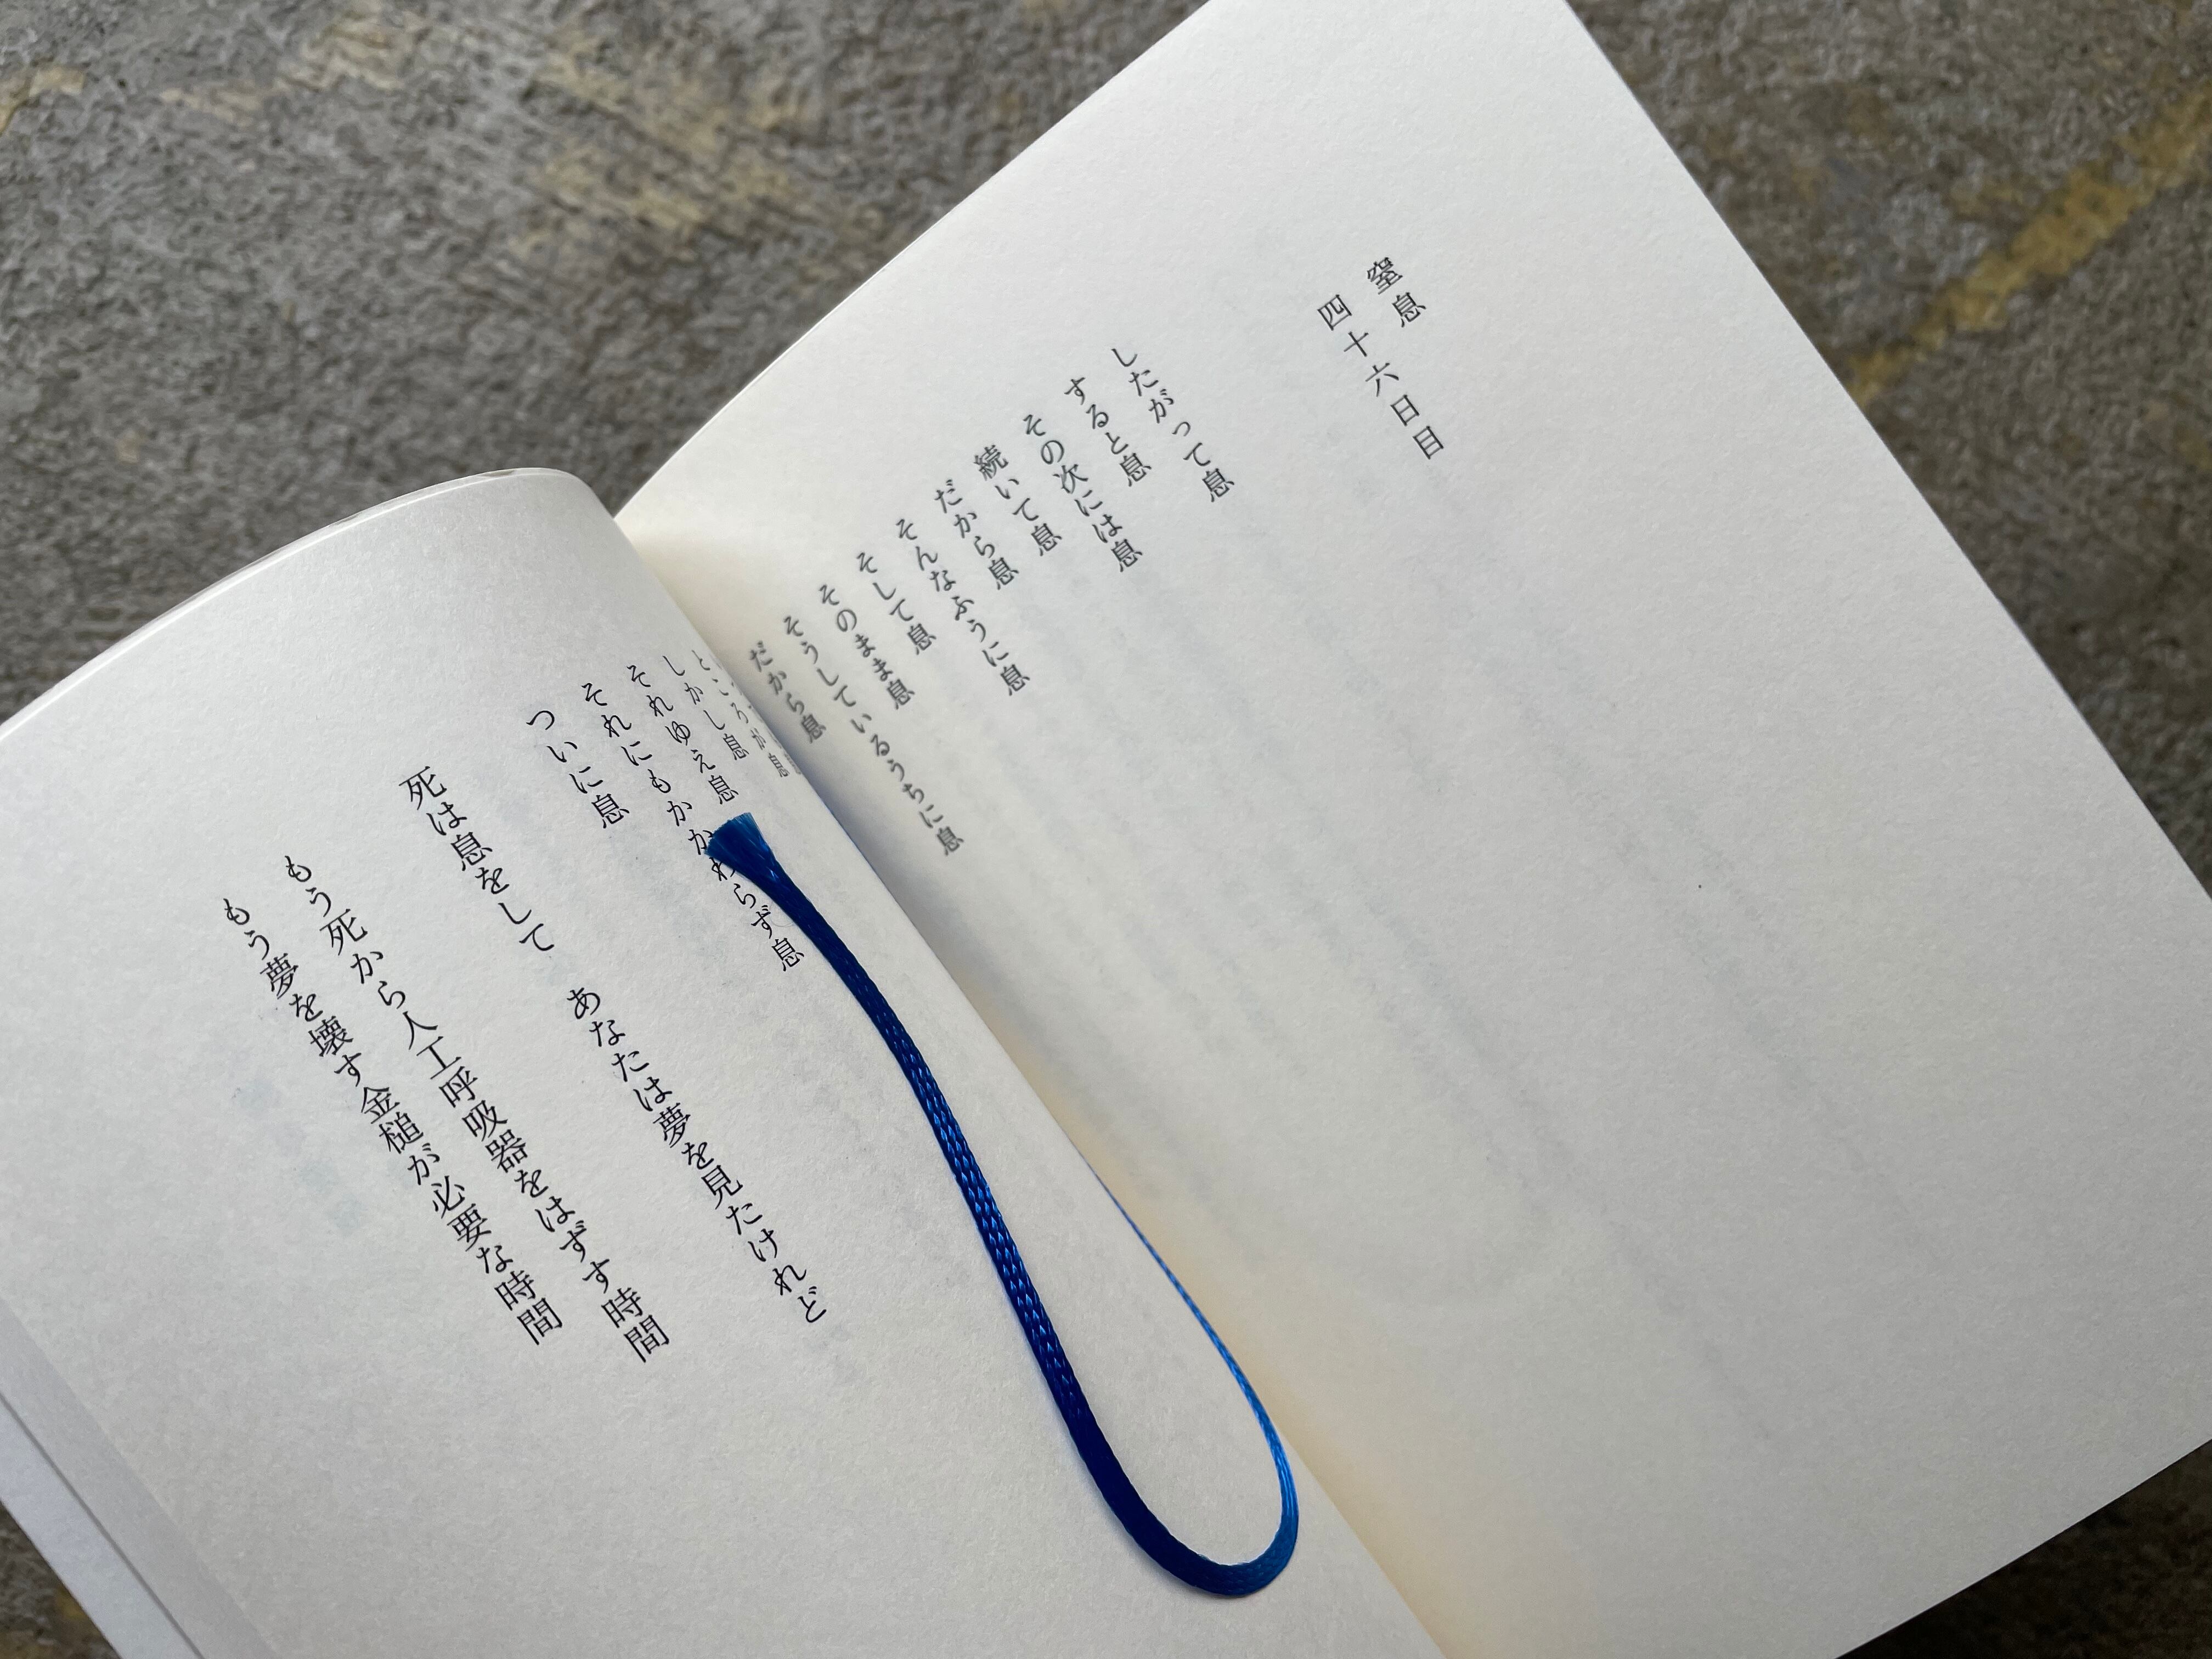 窒息
四十六日目
したがって息
すると息
その次には息
続いて息
だから息
そんなふうに息
そして息
そのまま息
そうしているうちに息
だから息
ところが息
しかし息
それゆえ息
それにもかかわらず息
ついに息
死は息をして　あなたは夢を見たけれど
もう死から人工呼吸器をはずす時間
もう夢を壊す金槌が必要な時間